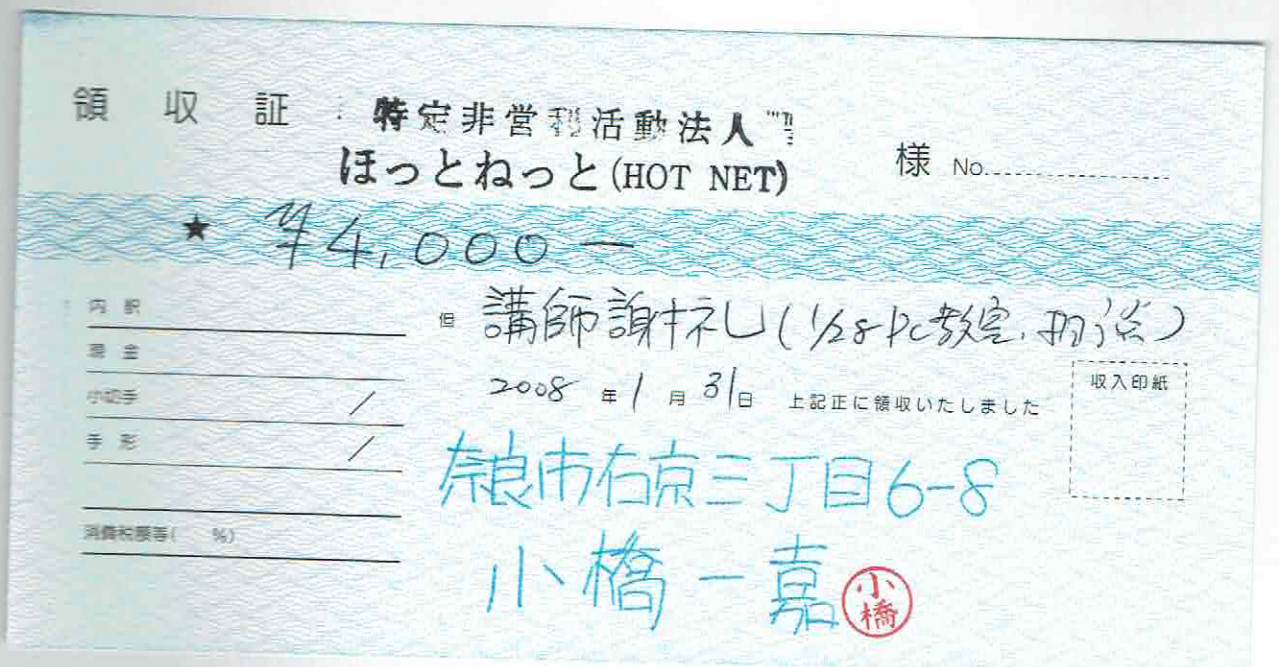 領収証 特定非営利活動法人
ほっとねっと(HOT NET) 様 No.
★ ¥4,000―
内訳
現金
小切手 /
手形 /
消費税額等( %)
但 講師謝礼(1/28 PC教室、)
2008年1月31日 上記正に領収いたしました
収入印紙
奈良市右京三丁目6-8
小橋一嘉
小橋